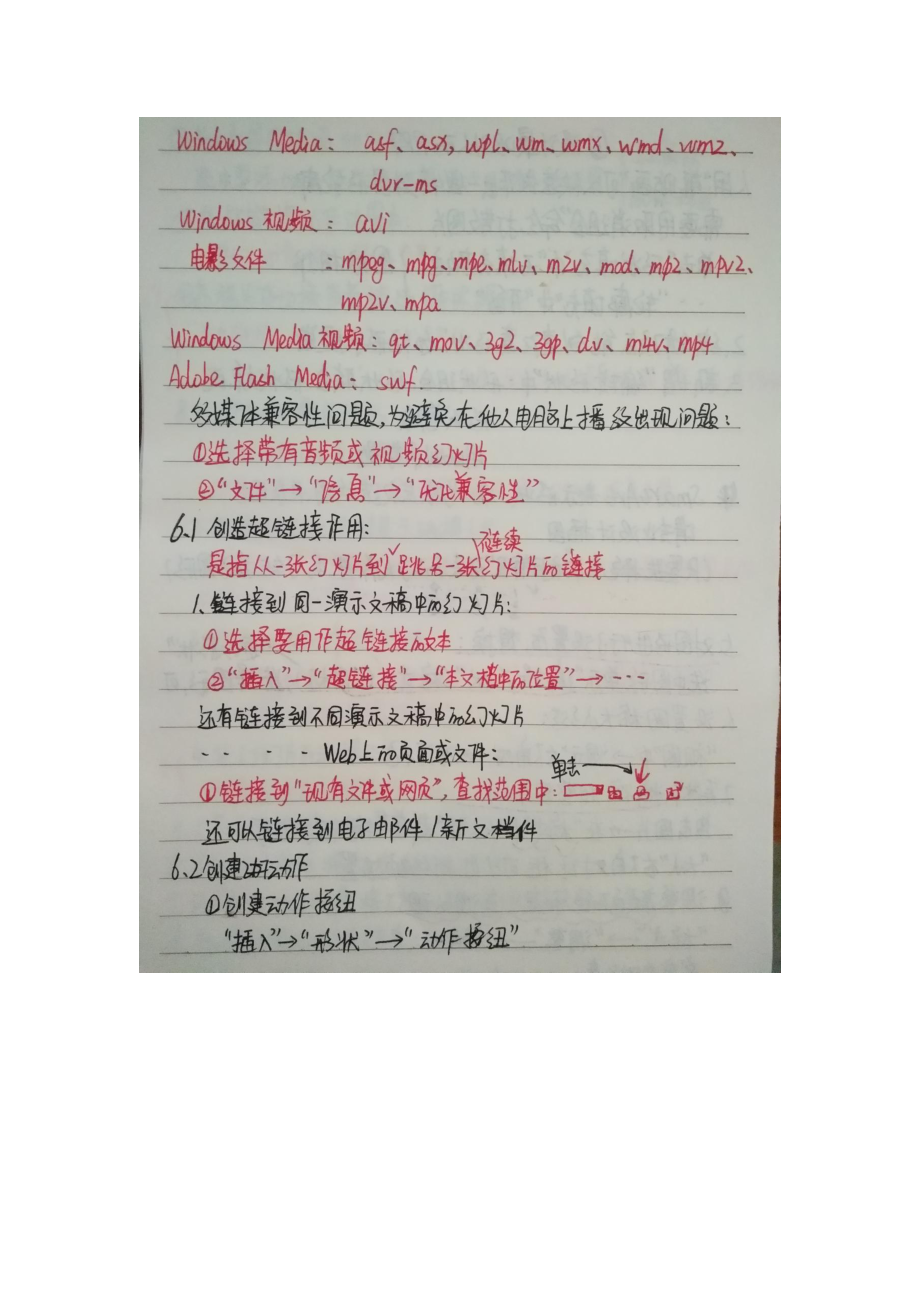 Windows Media: asf、asx, wpl、wm、wmx、wmd、wmz、
dvr-ms
Windows 视频: avi
电影文件 : mpeg、mpg、mpe、mlv、m2v、mod、mp2、mpv2、
mp2v、mpa
Windows Media 视频: qt、mov、3g2、3gp、dv、m4v、mp4
Adobe Flash Media: swf.
多媒体兼容性问题,为避免在他人电脑上播放出现问题:
①选择带有音频或视频幻灯片
②“文件”→“信息”→“优化兼容性”
6.1 创造超链接作用:
不连续
是指从一张幻灯片到跳另一张幻灯片的链接
1、链接到同一演示文稿中的幻灯片:
①选择要用作超链接的文本
②“插入”→“超链接”→“本文档中的位置”→---
还有链接到不同演示文稿中的幻灯片
- - - - Web上的页面或文件:
单击
①链接到“现有文件或网页”,查找范围中:
还可以链接到电子邮件/新文档件
6.2创建动作
①创建动作按钮
“插入”→“形状”→“动作按钮”